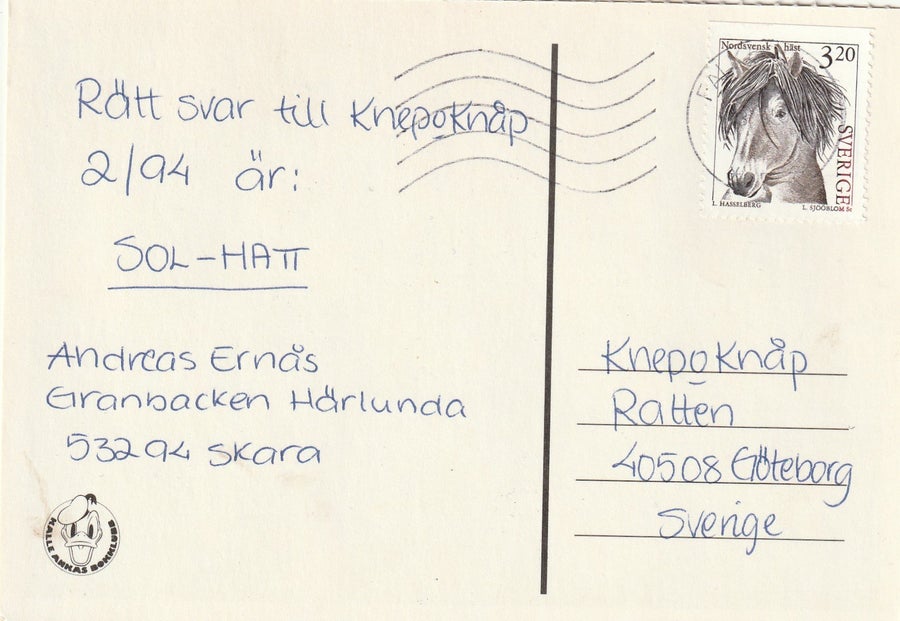 Rätt svar till KnepoKnåp
2/94 är:
SOL-HATT
Andreas Ernås
Granbacken Härlunda
53294 Skara
KALLE ANKAS BOKKLUBB
Nordsvensk häst
3 20
SVERIGE
L. HASSELBERG
L. SJÖÖBLOM Sc
KnepoKnåp
Ratten
40508 Göteborg
Sverige